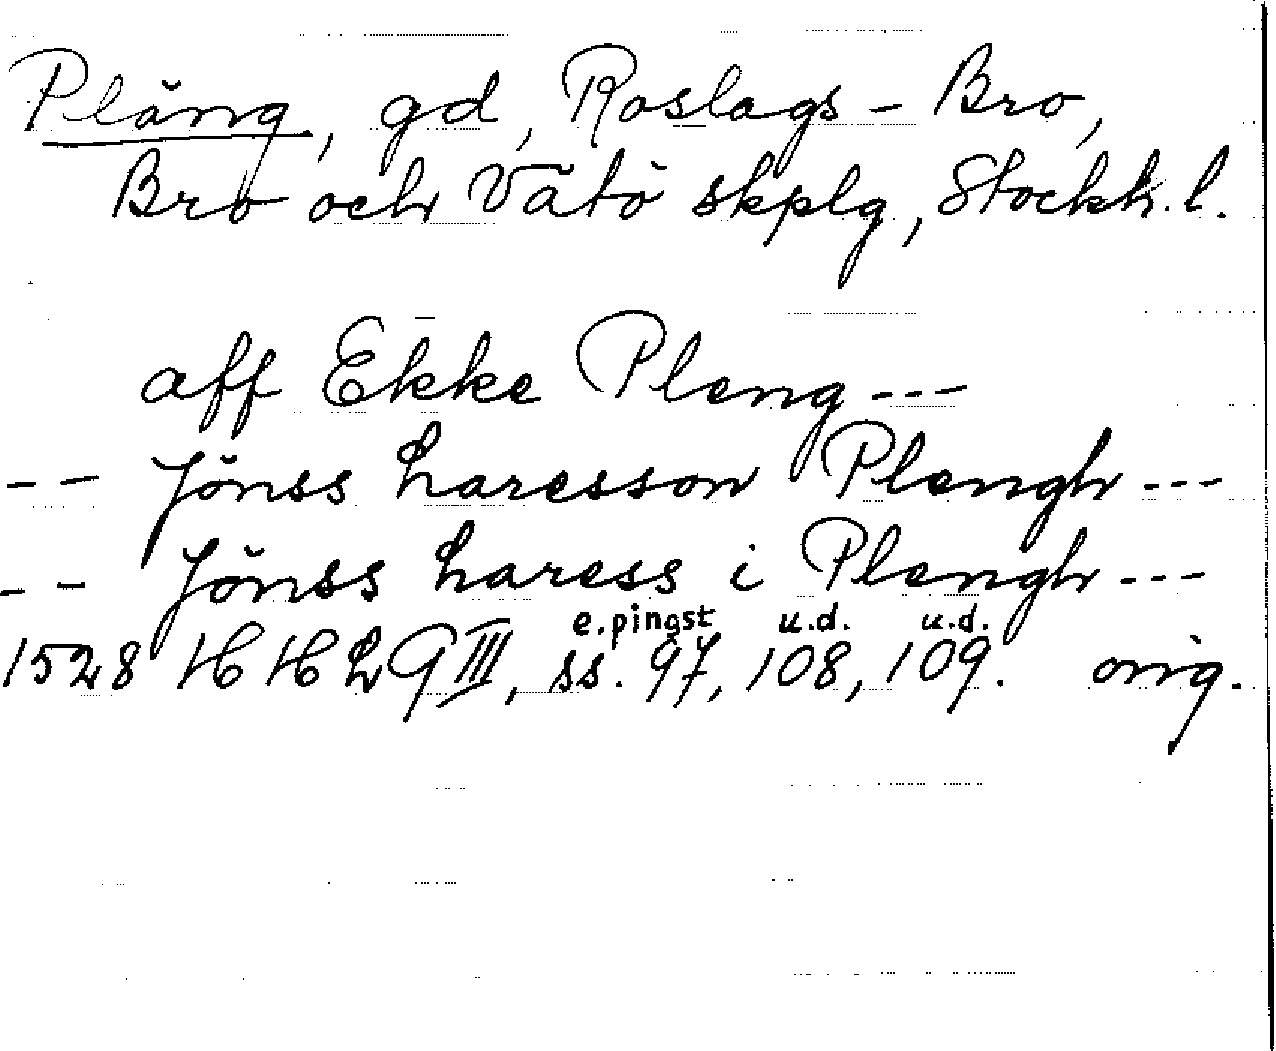 Pläng, gd, Roslags-Bro,
Bro och Vätö skplg, Stockh. l.
aff Ekke Pleng ---
-- Jönss haresson Plengh ---
-- Jönss haress i Plengh ---
e. pingst u.d. u.d.
1528 HH 2 G III, ss. 97, 108, 109. orig.